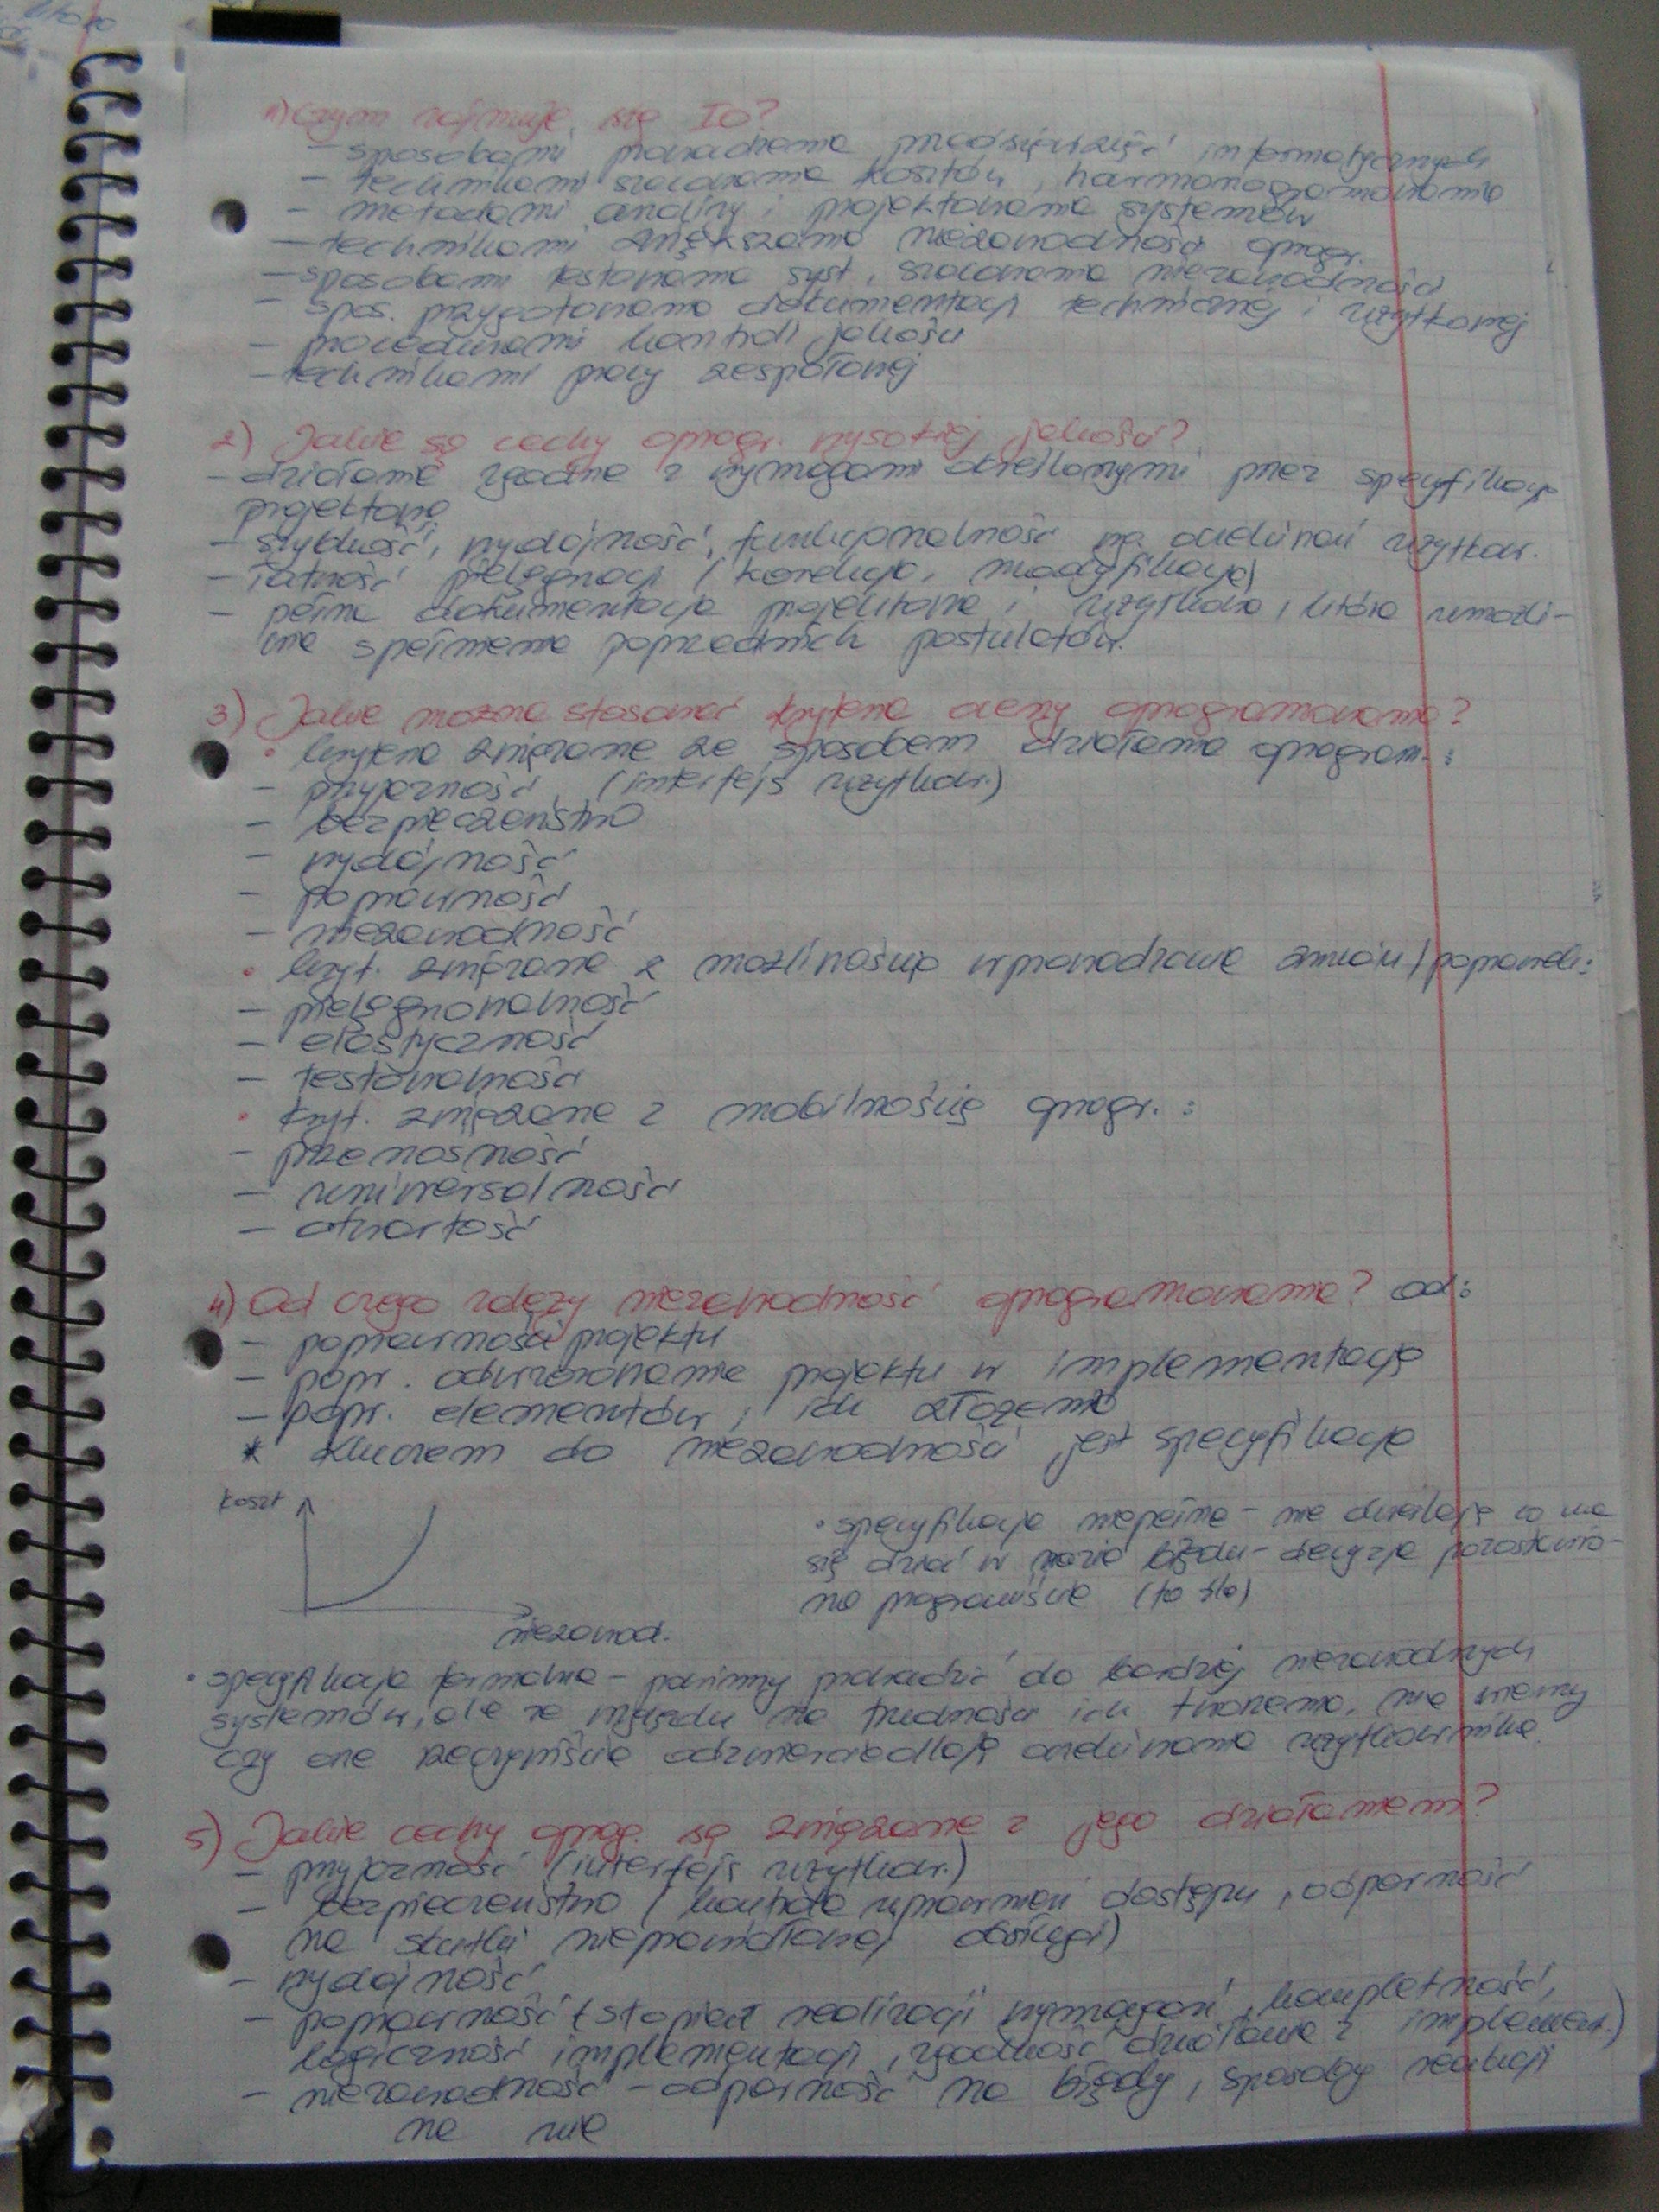 1) Czym zajmuje się IO?
- sposobami prowadzenia przedsięwzięć informatycznych
- technikami szacowania kosztów, harmonogramowania
- metodami analizy i projektowania systemów
- technikami zwiększania niezawodności oprogr.
- sposobami testowania syst., szacowania niezawodności
- spos. przygotowania dokumentacji technicznej i użytkowej
- procedurami kontroli jakości
- technikami pracy zespołowej
2) Jakie są cechy oprogr. wysokiej jakości?
- działanie zgodne z wymogami określonymi przez specyfikację
projektową
- szybkość, wydajność, funkcjonalność wg. oczekiwań użytkow.
- łatwość pielęgnacji (korekcja, modyfikacja)
- pełna dokumentacja projektowa i użytkowa, która umożli-
wia spełnienie poprzednich postulatów.
3) Jakie można stosować kryteria oceny oprogramowania?
• kryteria związane ze sposobem działania oprogram.:
- przyjazność (interfejs użytkow.)
- bezpieczeństwo
- wydajność
- poprawność
- niezawodność
• kryt. związane z możliwością wprowadzania zmian/poprawek:
- pielęgnowalność
- elastyczność
- testowalność
• kryt. związane z mobilnością oprogr.:
- przenośność
- uniwersalność
- otwartość
4) Od czego zależy niezawodność oprogramowania? od:
- poprawności projektu
- popr. odwzorowanie projektu w implementację
- popr. elementów i ich złożenia
* Kluczem do niezawodności jest specyfikacja
koszt
niezawod.
• specyfikacja niepełna - nie określają co ma
się dziać w razie błędu - decyzja pozostawio-
na programiście (to źle)
• specyfikacja formalna - powinny prowadzić do bardziej niezawodnych
systemów, ale ze względu na trudności ich tworzenia, nie wiemy
czy one rzeczywiście odzwierciedlają oczekiwania użytkownika.
5) Jakie cechy oprog. są związane z jego działaniem?
- przyjazność (interfejs użytkow.)
- bezpieczeństwo (kontrola uprawnień dostępu, odporność
na skutki nieprawidłowej obsługi)
- wydajność
- poprawność (stopień realizacji wymagań, kompletność,
logiczność implementacji, zgodność działania z implement.)
- niezawodność - odporność na błędy, sposoby reakcji
na nie